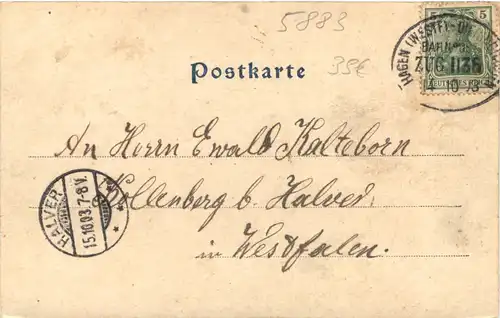 5883
35€
Postkarte
5 5
HAGEN (WESTF)-
BAHNPOST
ZUG 1136
14 10 3
DEUTSCHES REICH
An Herrn Ewald Kalteborn
Kollenberg b Halver
in Westfalen.
HALVER
15.10.03.7-8V.